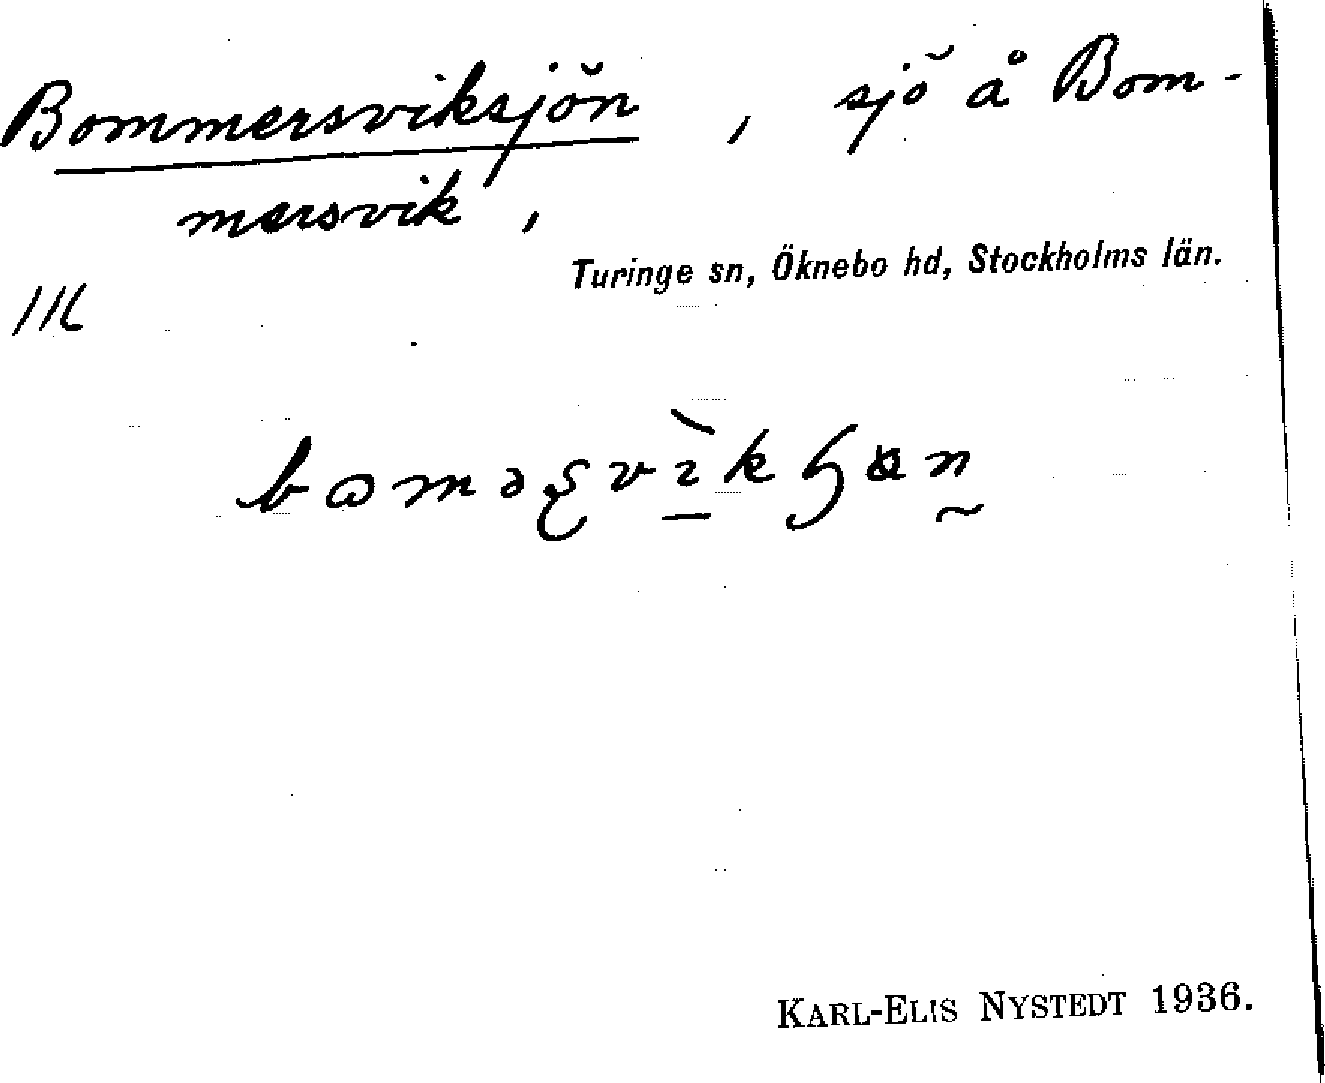 Bommersviksjön, sjö å Bom-
mersvik,
Turinge sn, Öknebo hd, Stockholms län.
KARL-ELIS NYSTEDT 1936.